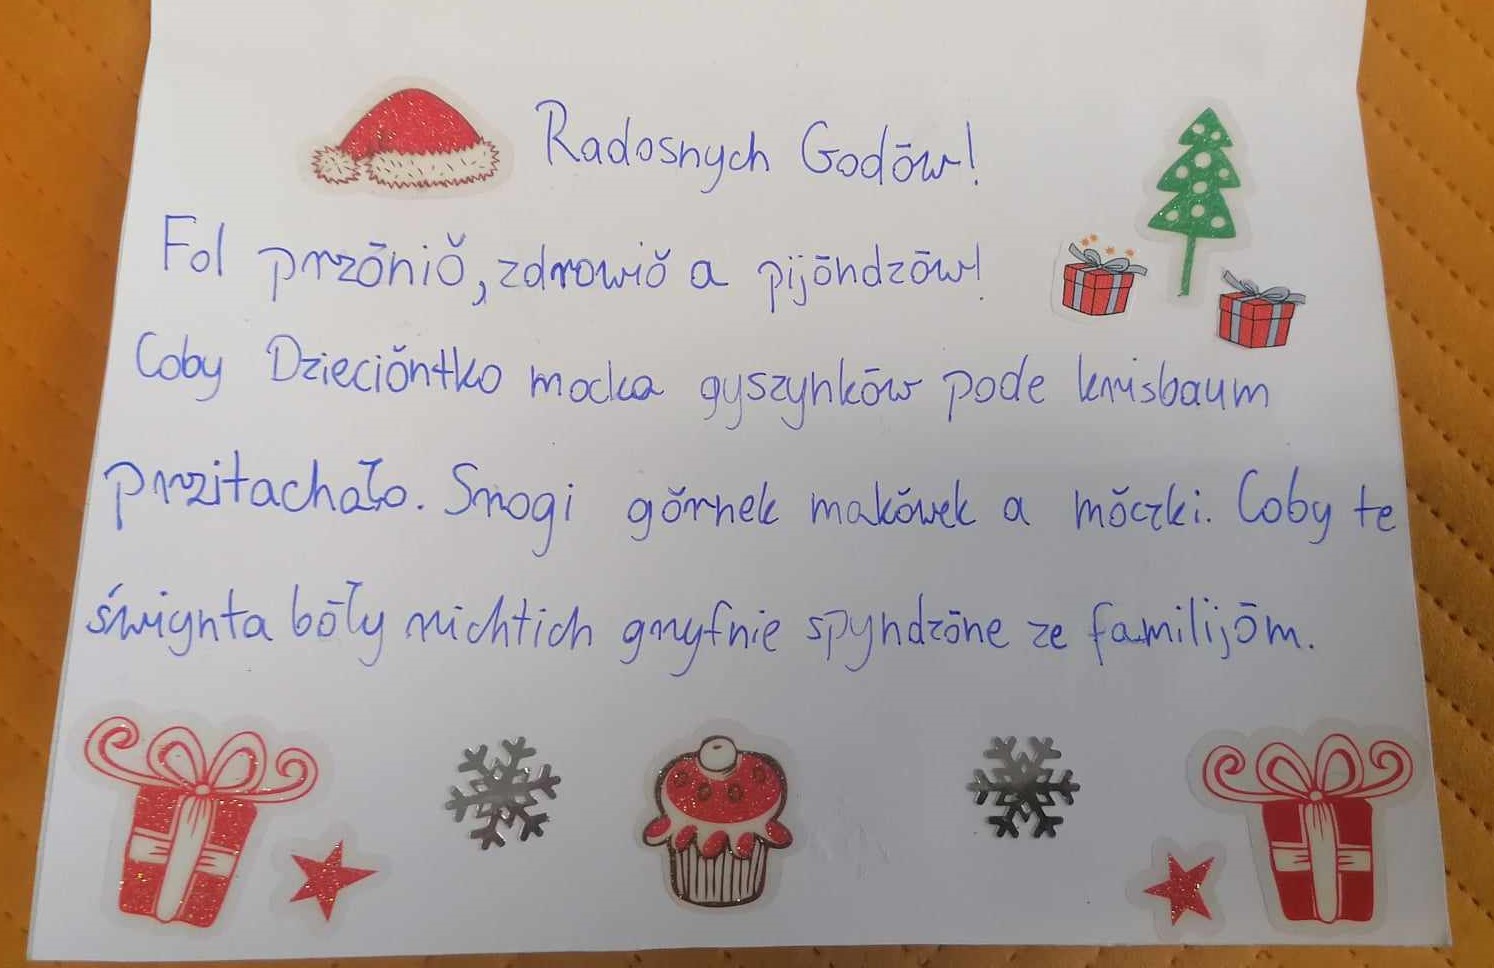 Radosnych Godōw!
Fol przōniŏ, zdrowiŏ a pijōndzōw!
Coby Dzieciŏntko mocka gyszynkōw pode krisbaum
przitachało. Srogi gŏrnek makōwek a mŏczki. Coby te
świynta bōły richtich gryfnie spyndzōne ze familijōm.